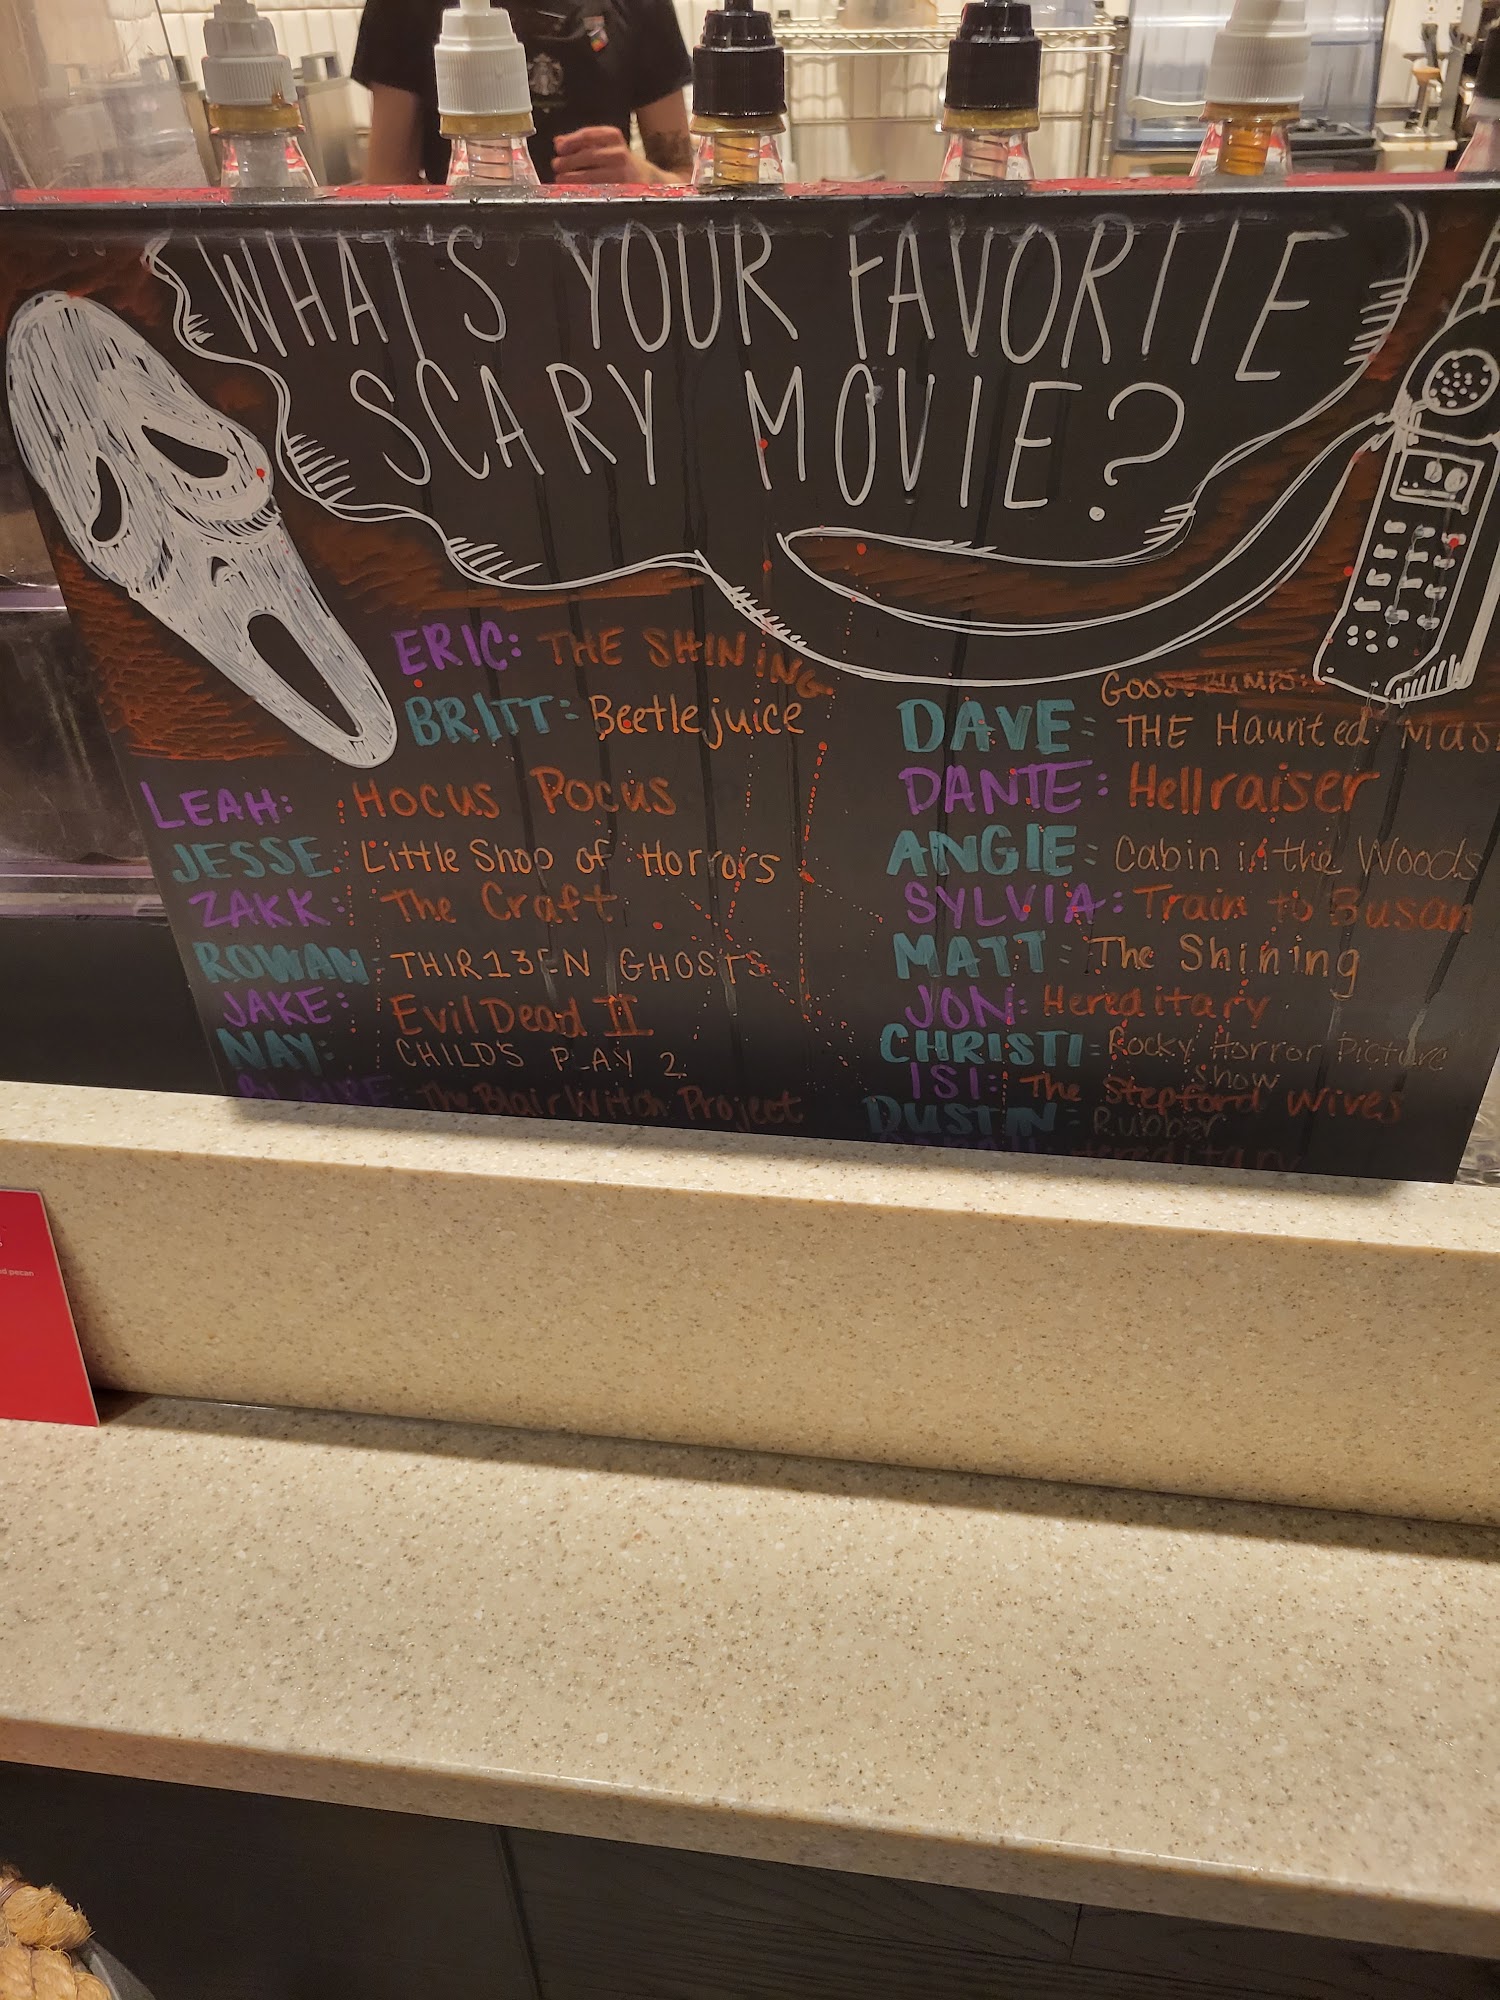 WHAT'S YOUR FAVORITE
SCARY MOVIE?
ERIC: THE SHINING
BRITT: Beetlejuice
LEAH: HOCUS POCUS
JESSE: Little Shop of Horrors
ZAKK: The Craft
ROWAN: THIR13EN GHOSTS
JAKE: Evil Dead II
NAY: CHILD'S PLAY 2
The Blair Witch Project
GOOSEBUMPS:
DAVE: THE Haunted Mas
DANTE: Hellraiser
ANGIE: Cabin in the Woods
SYLVIA: Train to Busan
MATT: The Shining
JON: Hereditary
CHRISTI: Rocky Horror Picture
Show
ISI: The Stepford Wives
DUSTIN: Rubber
Hereditary
pecan